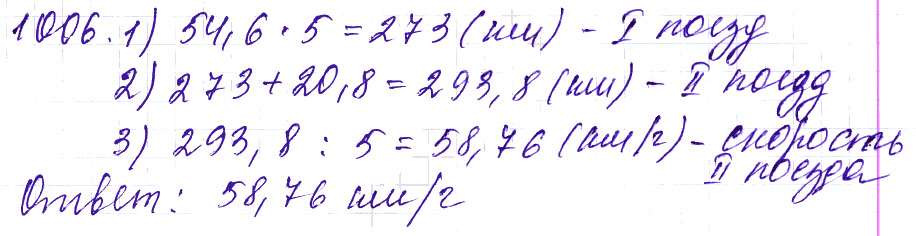 1006. 1) 54,6 · 5 = 273 (км) – I поезд
2) 273 + 20,8 = 293,8 (км) – II поезд
3) 293,8 : 5 = 58,76 (км/ч) – скорость
II поезда
Ответ: 58,76 км/ч